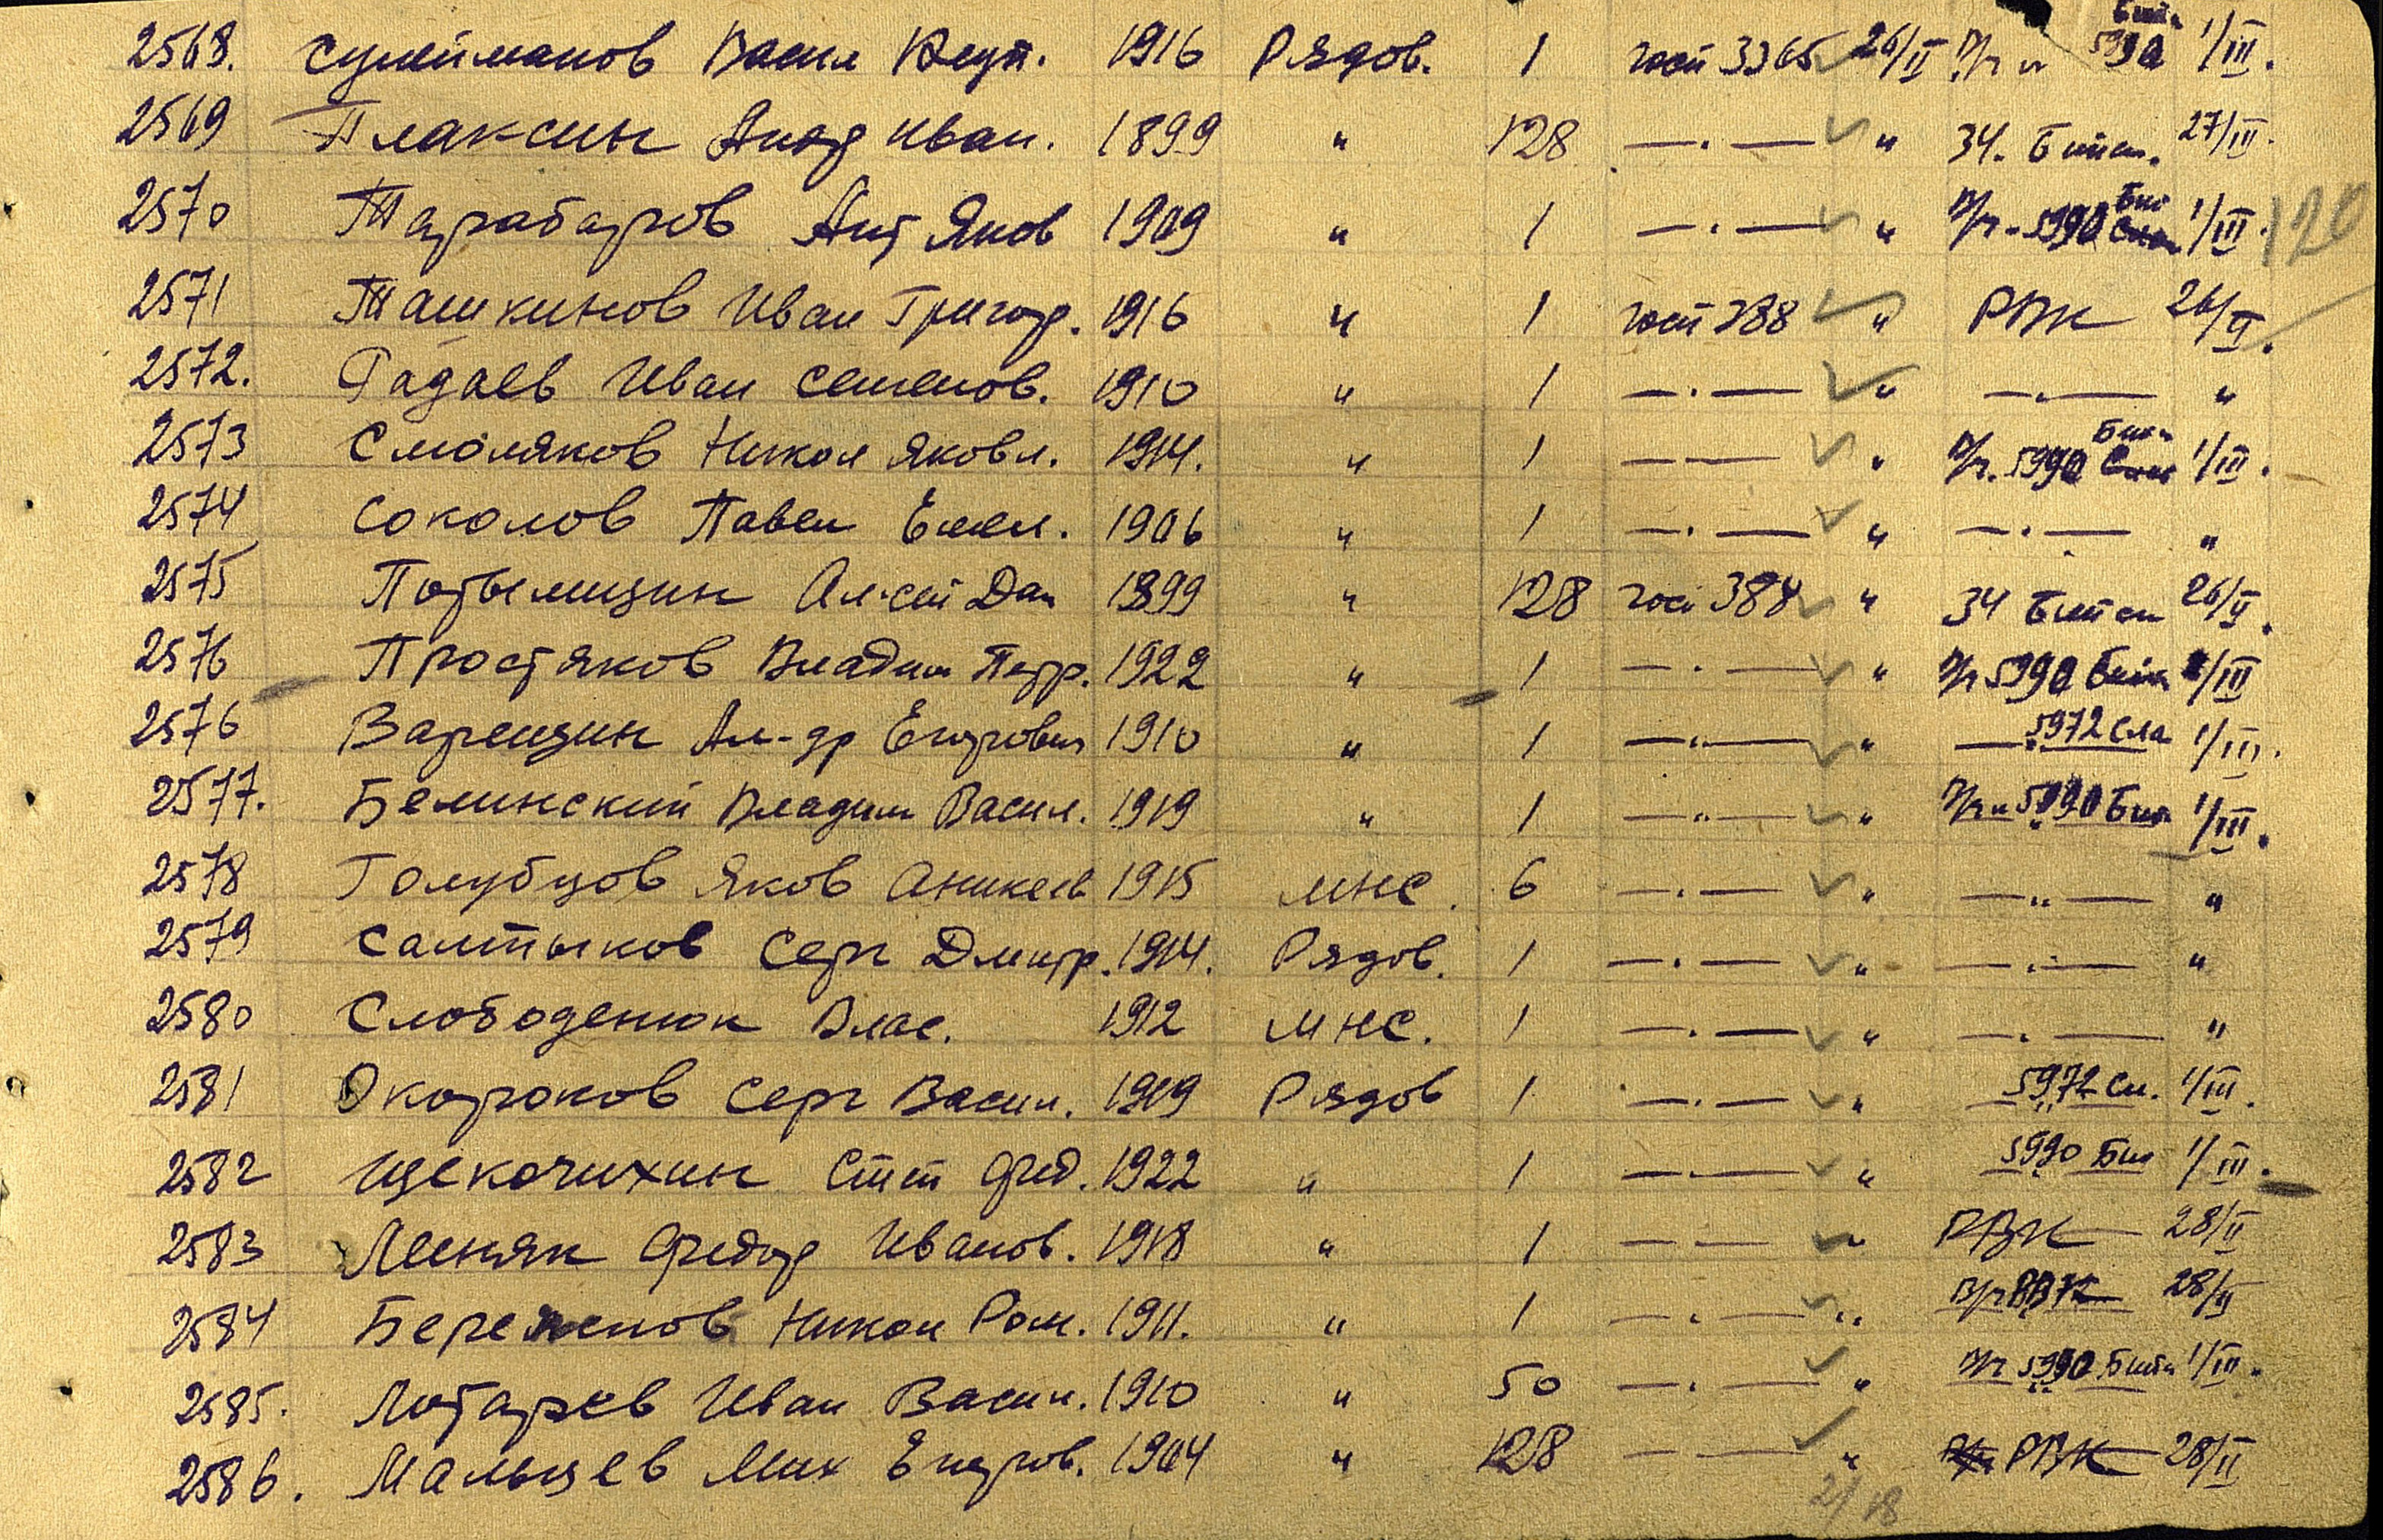 2568. Сулейманов Васил Юсуп. 1916 Рядов. 1 гост 3365 26/II П/п 5990 Бийск 1/III.
2569 Плаксин Анд Иван. 1899 " 128 —.— " 34. Бийск. 27/III.
2570 Тарабаров Ант Яков 1909 " 1 —.— " П/п-5990 Бий 1/III. 120
2571 Ташкинов Иван Григор. 1916 " 1 гост 388 " РВК 26/II.
2572. Гадаев Иван Семенов. 1910 " 1 —.— " —.— "
2573 Смоляков Никол Яковл. 1914. " 1 —— " П/п. 5990 Бийск 1/III.
2574 Соколов Павел Емел. 1906 " 1 —.— " —.— "
2575 Потемицин Ал-сей Дан 1899 " 128 гос 384 " 34 Бийск 26/II.
2576 Простяков Владим Петр. 1922 " 1 —.— " П/п 5990 Бийск 1/III
2576 Варенцин Ал-др Егорович 1910 " 1 —"— " —5972 Сла 1/III.
2577. Белинский Владим Васил. 1919 " 1 —"— " П/п 5990 Бий 1/III.
2578 Голубцов Яков Аникеев 1915 МНС. 6 —.— " —"— "
2579 Салтыков Серг Дмитр. 1914. Рядов. 1 —.— " —.— "
2580 Слободенюк Влас. 1912 МНС. 1 —.— " —.— "
2581 Окороков Серг Васил. 1919 Рядов 1 —.— " 5972 Сл. 1/III.
2582 Щекочихин Стп Фед. 1922 " 1 —.— " 5990 Бий 1/III.
2583 Леняк Федор Иванов. 1918 " 1 —— " РВК 28/II
2584 Никол Ром. 1911. " 1 —.— " П/п РВК 28/II
2585. Лотарев Иван Васил. 1910 " 50 —.— " П/п 5990 Бийск 1/III.
2586. Мальцев Мих Егоров. 1904 " 128 —— " РВК 28/II